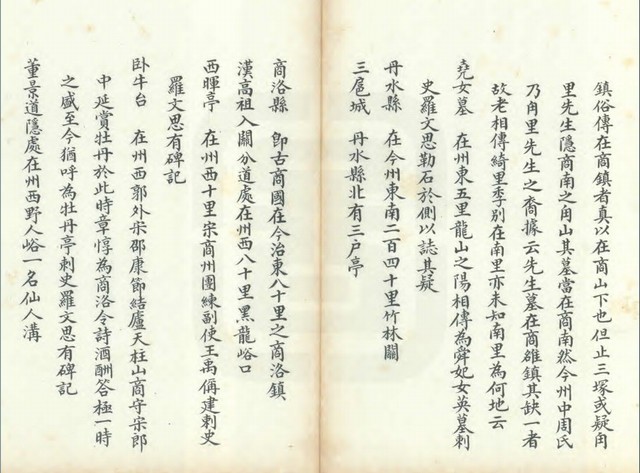 鎮俗傳在商鎮者真以在商山下也但止三塚或疑甪
里先生隱商南之甪山其墓當在商南然今州中周氏
乃甪里先生之裔據云先生墓在商雒鎮其缺一者
故老相傳綺里季別在南里亦未知南里為何地云
堯女墓　在州東五里龍山之陽相傳為舜妃女英墓刺
史羅文思勒石於側以誌其疑
丹水縣　在今州東南二百四十里竹林關
三扈城　丹水縣北有三户亭
商洛縣　即古商國在今治東八十里之商洛鎮
漢高祖入關分道處在州西八十里黑龍峪口
西暉亭　在州西十里宋商州團練副使王禹偁建刺史
羅文思有碑記
卧牛台　在州西郭外宋邵康節結廬天柱山商守宋郎
中延賞牡丹於此時章惇為商洛令詩酒酬答極一時
之盛至今猶呼為牡丹亭刺史羅文思有碑記
董景道隱處在州西野人峪一名仙人溝